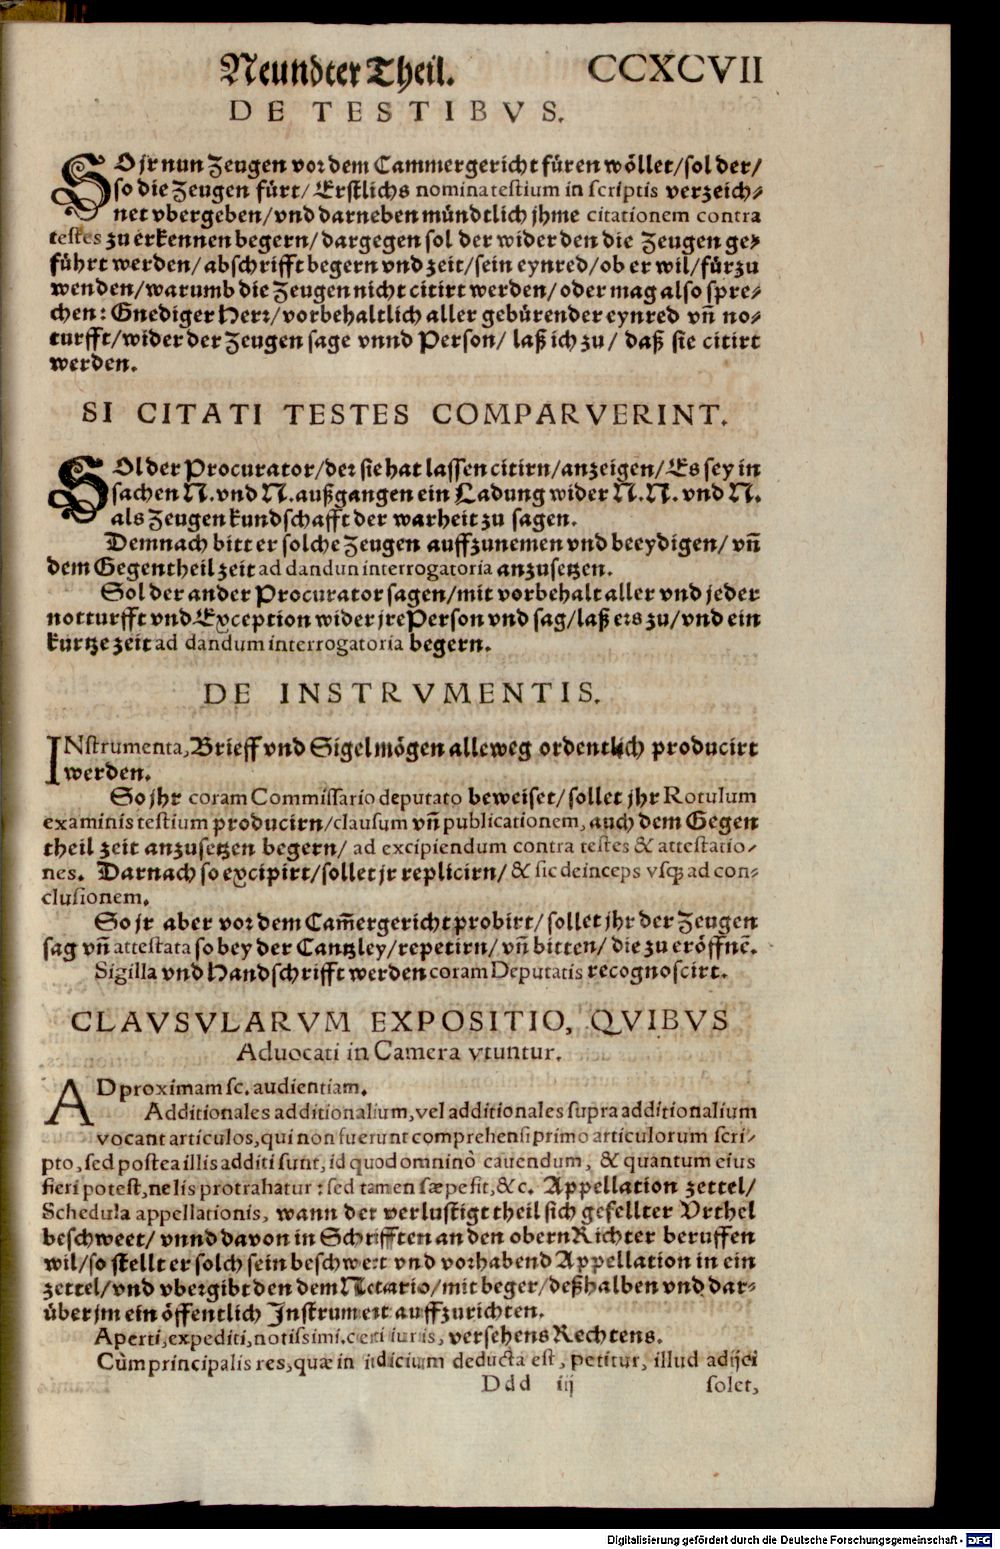 Neundter Theil. CCXCVII
DE TESTIBVS.
SO jr nun Zeugen vor dem Cammergericht füren wöllet/sol der/
so die Zeugen fürt/ Erstlichs nomina testium in scriptis verzeich-
net vbergeben/vnd darneben mündtlich jhme citationem contra
testes zu erkennen begern/dargegen sol der wider den die Zeugen ge-
führt werden/abschrifft begern vnd zeit/sein eynred/ob er wil/fürzu
wenden/warumb die Zeugen nicht citirt werden/oder mag also spre-
chen: Gnediger Herr/vorbehaltlich aller gebürender eynred vñ no-
turfft/wider der Zeugen sage vnnd Person/ laß ich zu/ daß sie citirt
werden.
SI CITATI TESTES COMPARVERINT.
SOl der Procurator/der sie hat lassen citirn/anzeigen/Es sey in
sachen N.vnd N.außgangen ein Ladung wider N.N.vnd N.
als Zeugen kundschafft der warheit zu sagen.
Demnach bitt er solche Zeugen auffzunemen vnd beeydigen/vñ
dem Gegentheil zeit ad dandun interrogatoria anzusetzen.
Sol der ander Procurator sagen/mit vorbehalt aller vnd jeder
notturfft vnd Exception wider jre Person vnd sag/laß ers zu/vnd ein
kurtze zeit ad dandum interrogatoria begern.
DE INSTRVMENTIS.
INstrumenta, Brieff vnd Sigel mögen alleweg ordentlich producirt
werden.
So jhr coram Commissario deputato beweiset/sollet jhr Rotulum
examinis testium producirn/clausum vñ publicationem, auch dem Gegen
theil zeit anzusetzen begern/ ad excipiendum contra testes & attestatio-
nes. Darnach so excipirt/sollet jr replicirn/ & sic deinceps vsq; ad con-
clusionem.
So jr aber vor dem Cam̃ergericht probirt/sollet jhr der Zeugen
sag vñ attestata so bey der Cantzley/repetirn/vñ bitten/ die zu eröffnẽ.
Sigilla vnd Handschrifft werden coram Deputatis recognoscirt.
CLAVSVLARVM EXPOSITIO, QVIBVS
Aduocati in Camera vtuntur.
AD proximam sc. audientiam.
Additionales additionalium, vel additionales supra additionalium
vocant articulos, qui non fuerunt comprehensi primo articulorum scri-
pto, sed postea illis additi sunt, id quod omninò cauendum, & quantum eius
fieri potest, ne lis protrahatur: sed tamen sæpe fit, &c. Appellation zettel/
Schedula appellationis, wann der verlustigt theil sich gefellter Vrthel
beschweet/ vnnd davon in Schrifften an den obern Richter beruffen
wil/so stellt er solch sein beschwert vnd vorhabend Appellation in ein
zettel/vnd vbergibt den dem Notario/mit beger/deßhalben vnd dar-
über jm ein öffentlich Instrument auffzurichten.
Aperti, expediti, notissimi, certi iuris, versehens Rechtens.
Cùm principalis res, quæ in iudicium deducta est, petitur, illud adijci
Ddd iij solet,
Digitalisierung gefördert durch die Deutsche Forschungsgemeinschaft - DFG